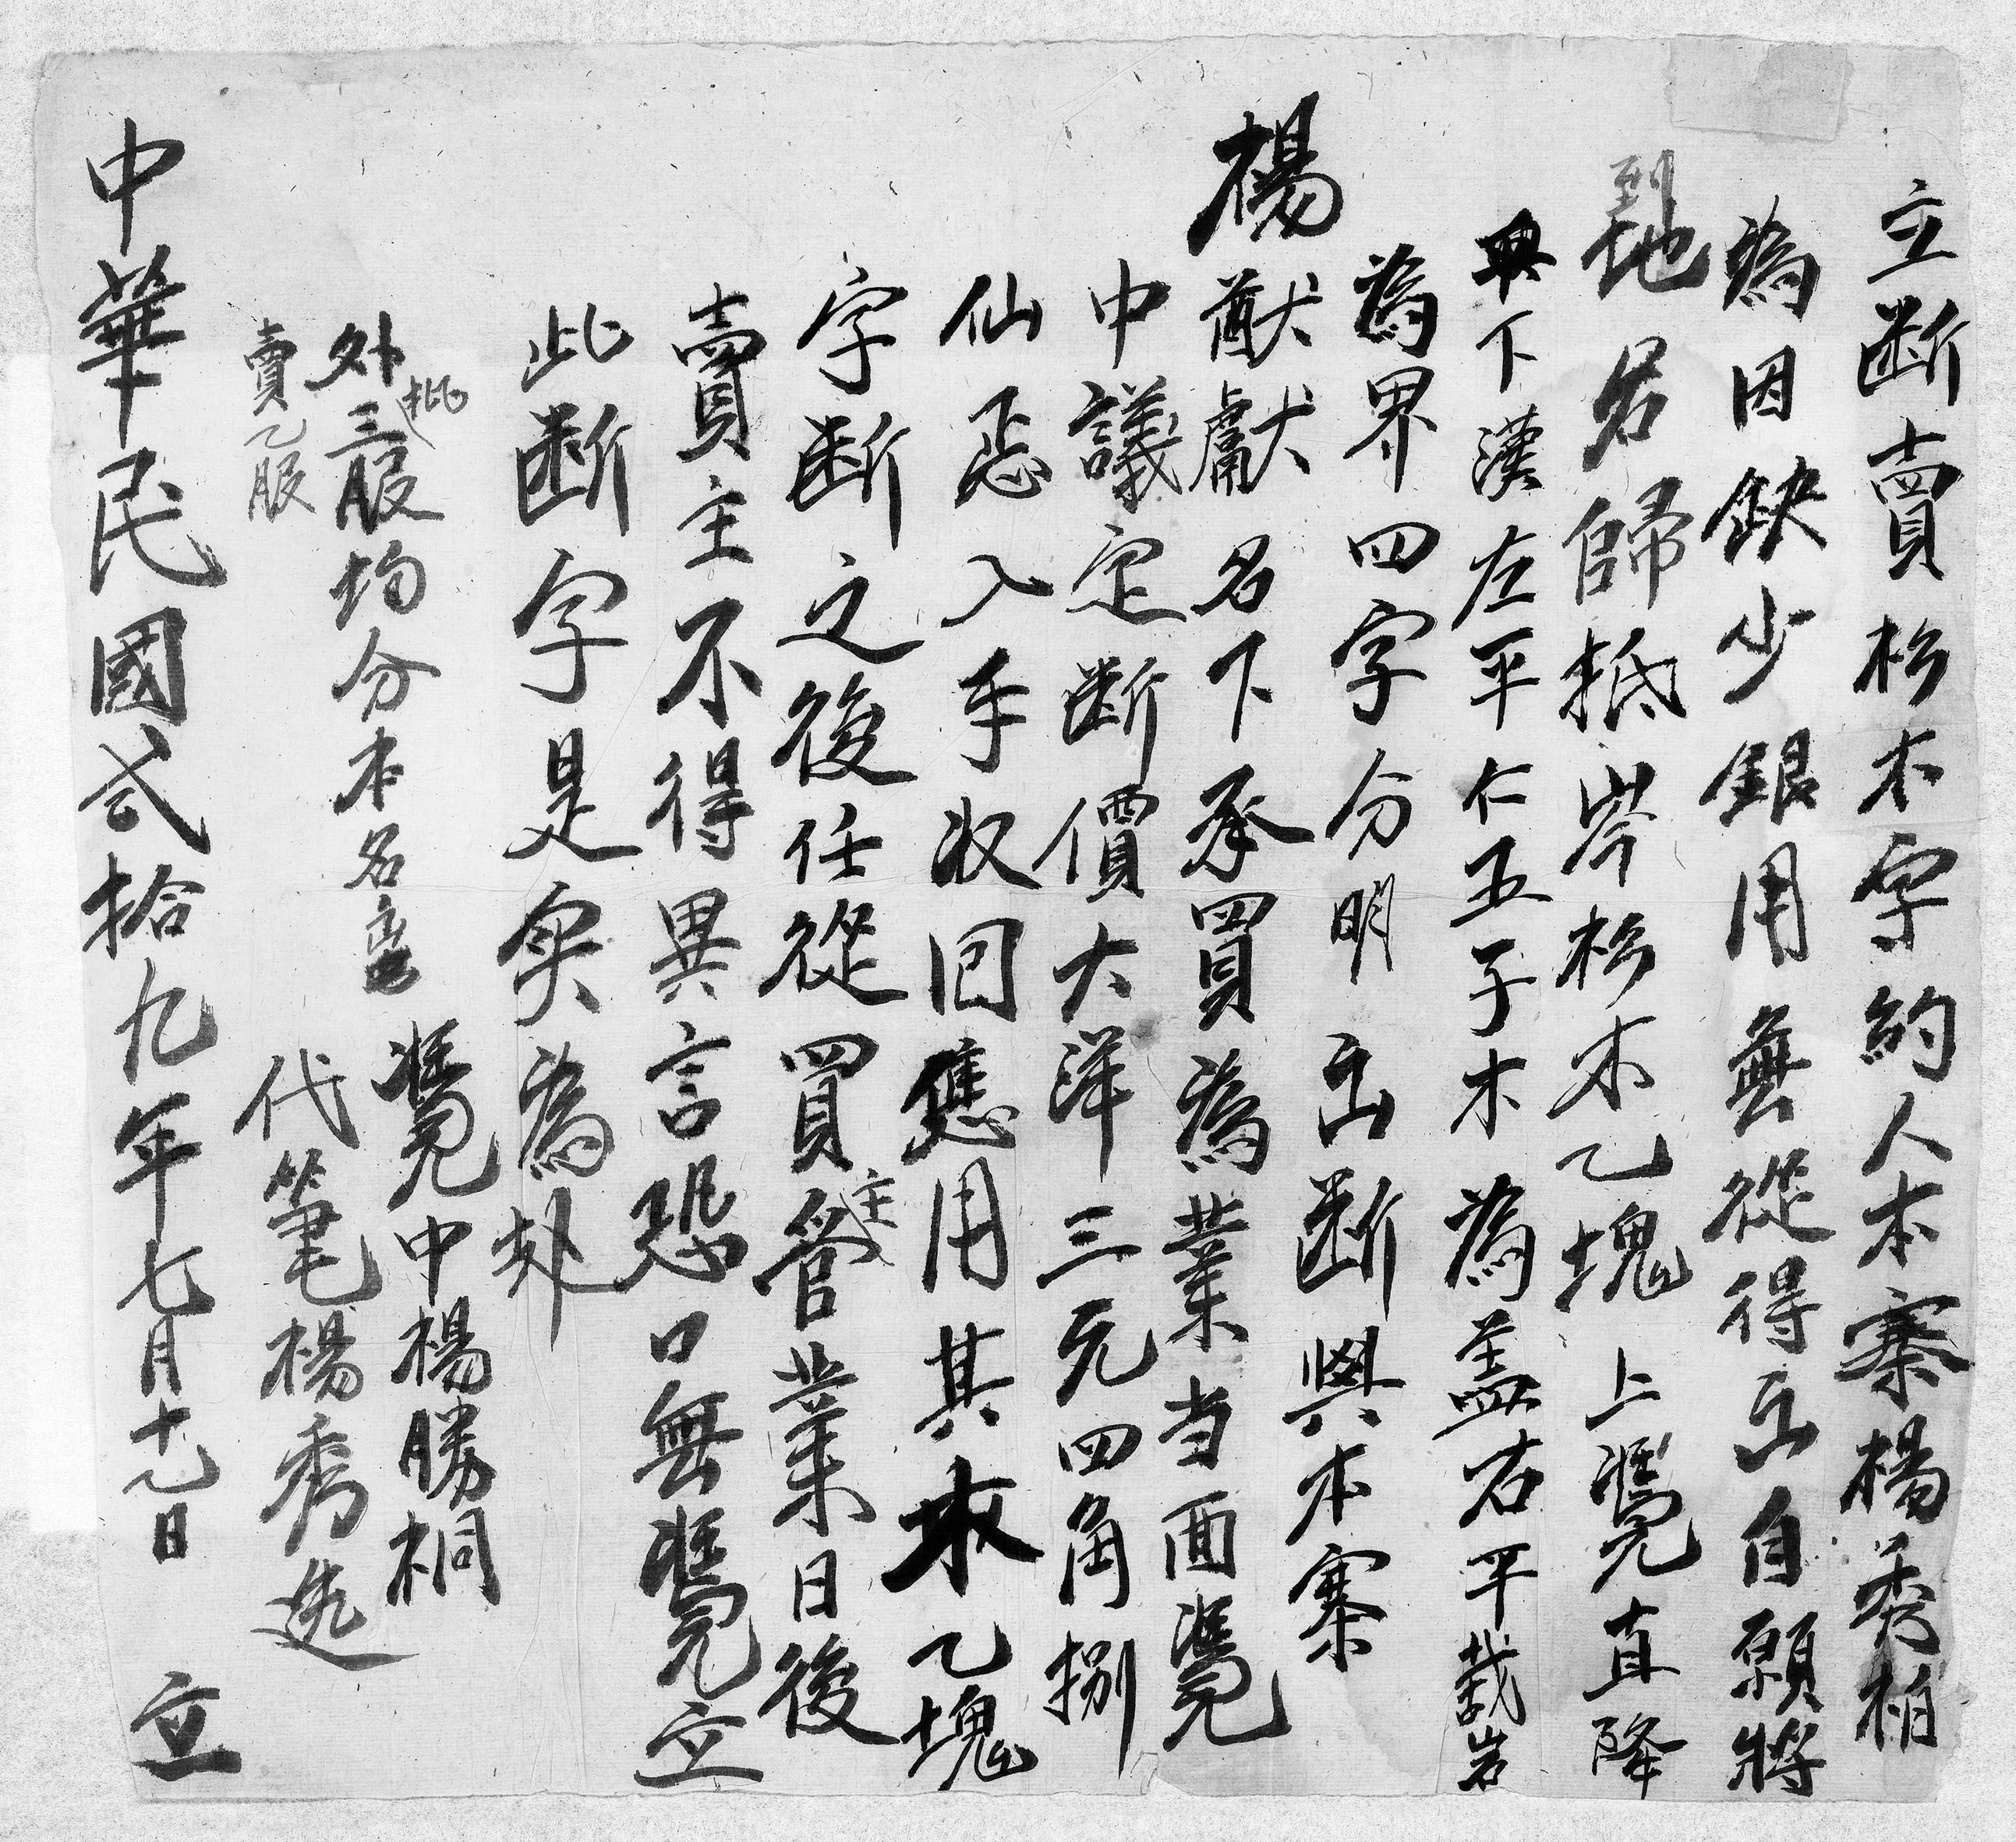 立断賣杉木字約人本寨楊秀柏
為因缺少銀用無從得出自願將
到地名歸抵岑杉木乙塊上憑直降
與下漢左平仁五子木為盖右平栽岩
為界四字分明出断與本寨
楊猷獻名下承買為業当面憑
中議定断價大洋三元四角捌
仙恶入手收回應用其木乙塊
字断之後任從買主管業日後
賣主不得異言恐口無憑立
此断字是实為処
外批三股均分本名
賣乙股
憑中楊勝桐
代筆楊秀选
中華民國弍拾九年七月十九日 立